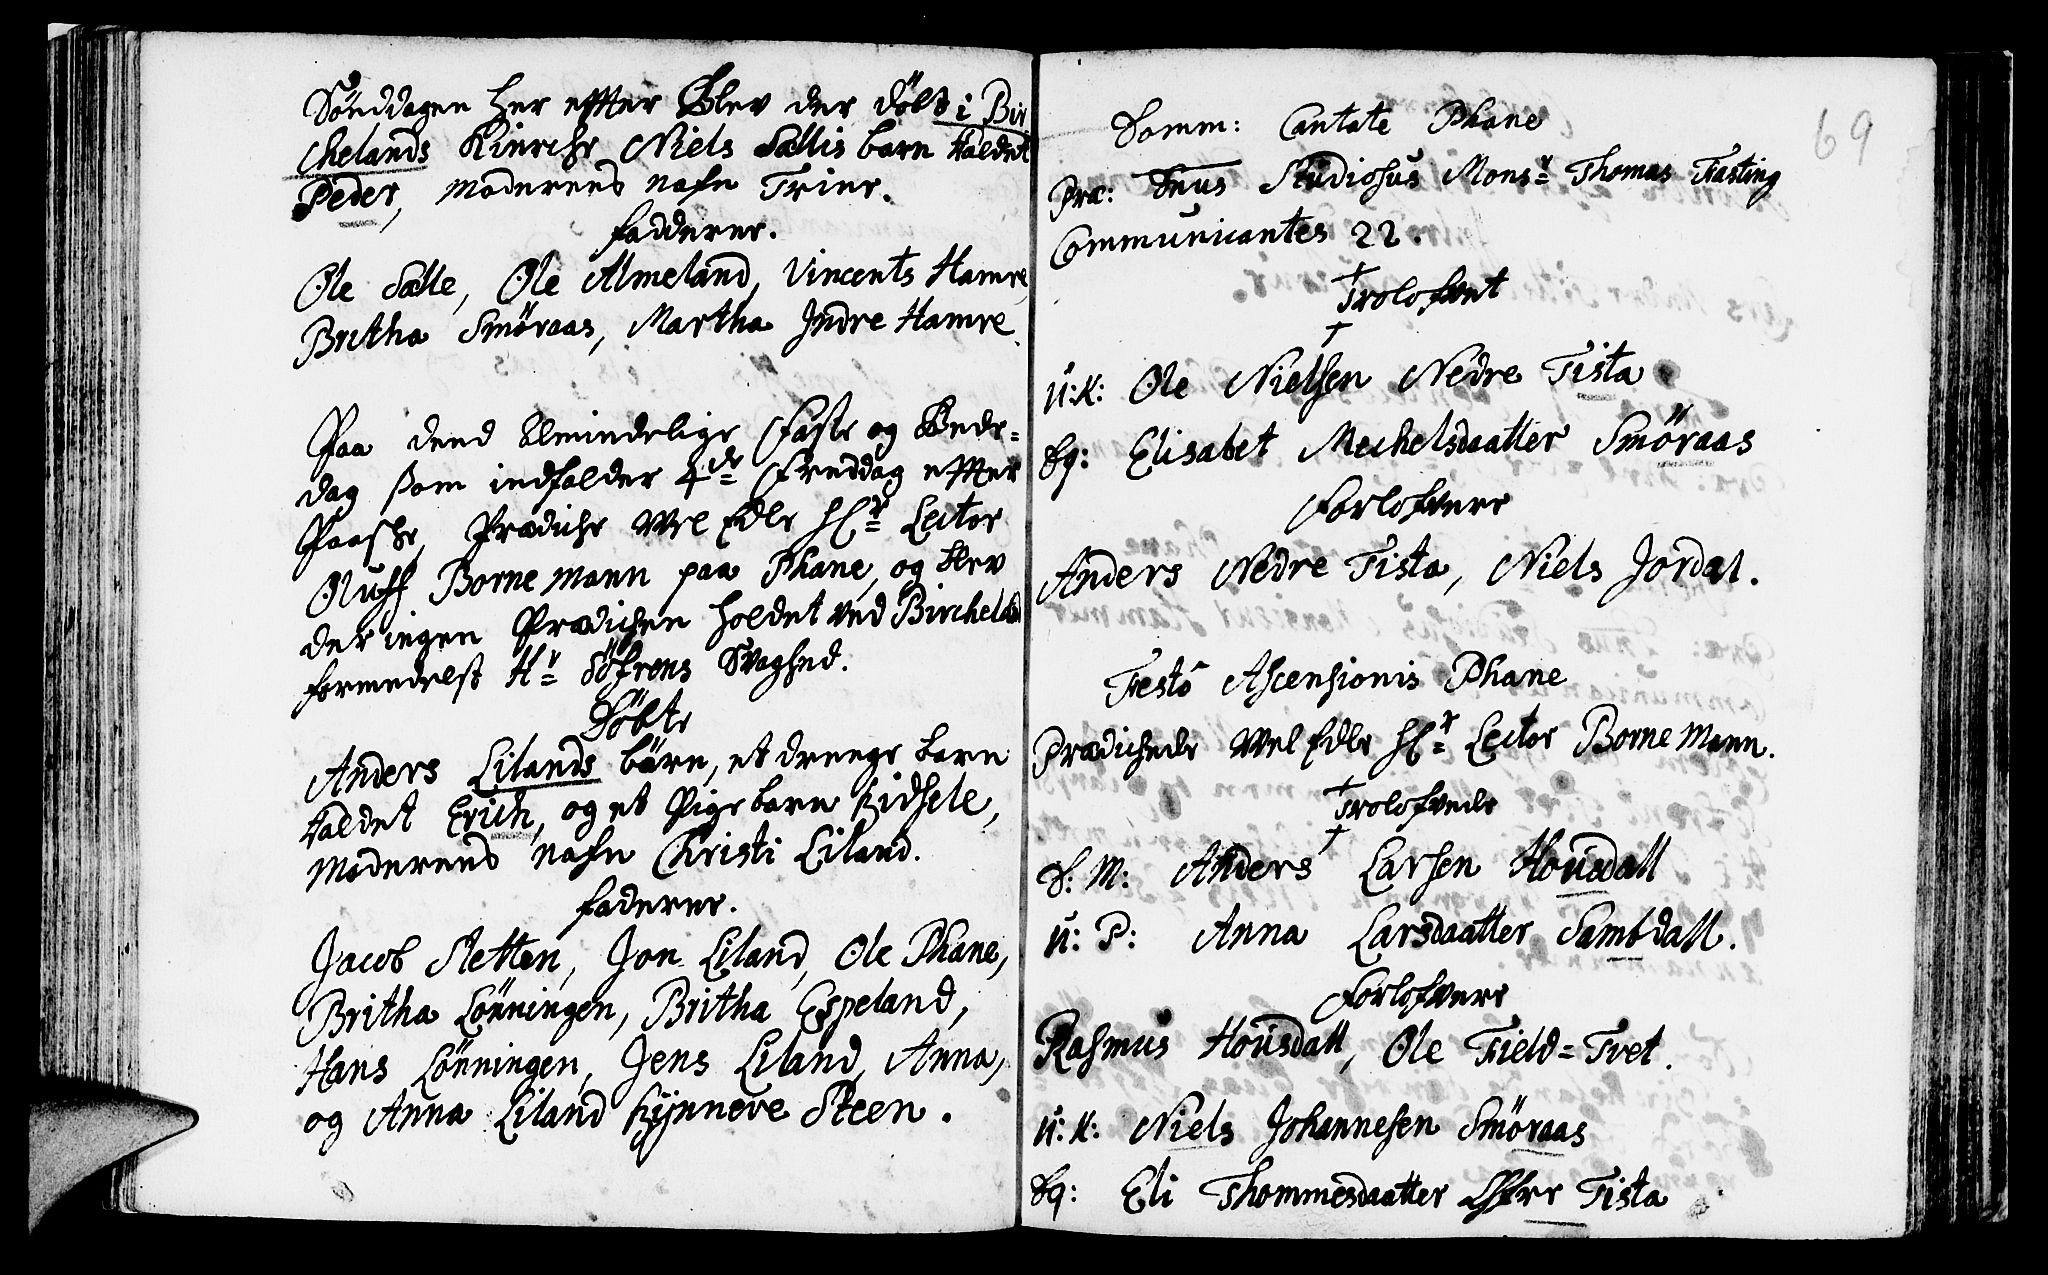 Sönddagen her effter Blev der döbt i Bir
chelands Kirche Niels Sællis barn kaldet
Peder, Moderens nafn Trine.
fadderne.
Ole Sælle, Ole Almeland, Vincents Hamre,
Britha Smöraas, Martha Indre Hamre.
Paa dend Almindelige Faste og Bede=
dag som indfalder 4de Freddag effter
Paasche, Prædiche Wel Edle Hr Lector
Oluff Bornemann paa Phane, og blev
der ingen Prædichen holdet ved Bircheland
formedelst Hr Söfrens Svaghed.
Döbte
Anders Lilands börn, et drenge barn
kaldet Erich, og et Pige barn Sidsele,
Moderens nafn Christi Liland.
faderne.
Jacob Sletten, Jon Liland, Ole Phane,
Britha Lönningen, Britha Espeland,
Hans Lönningen, Jens Liland, Anna,
og Anna Liland Synneve Steen.
69
Domm: Cantate Phane
Præ: Dnus Studiosus Monsr Thomas Fasting
Communicantes 22.
Trolofvet
U:K: Ole Nielsen Nedre Tista
Sq: Elisabet Mechelsdaatter Smöraas
Forlofvere
Anders Nedre Tista, Niels Jordal.
Festo Ascensionis Phane
Prædichede Wel Edle Hr Lector Bornemann.
Trolofvede
S: M: Anders Larsen Housdall
U: P: Anna Larsdaatter Sambdall.
Forlofvere
Rasmus Housdall, Ole Field=Tret.
U:K: Niels Johannesen Smöraas
Sq: Eli Thommesdaatter Öfre Tista